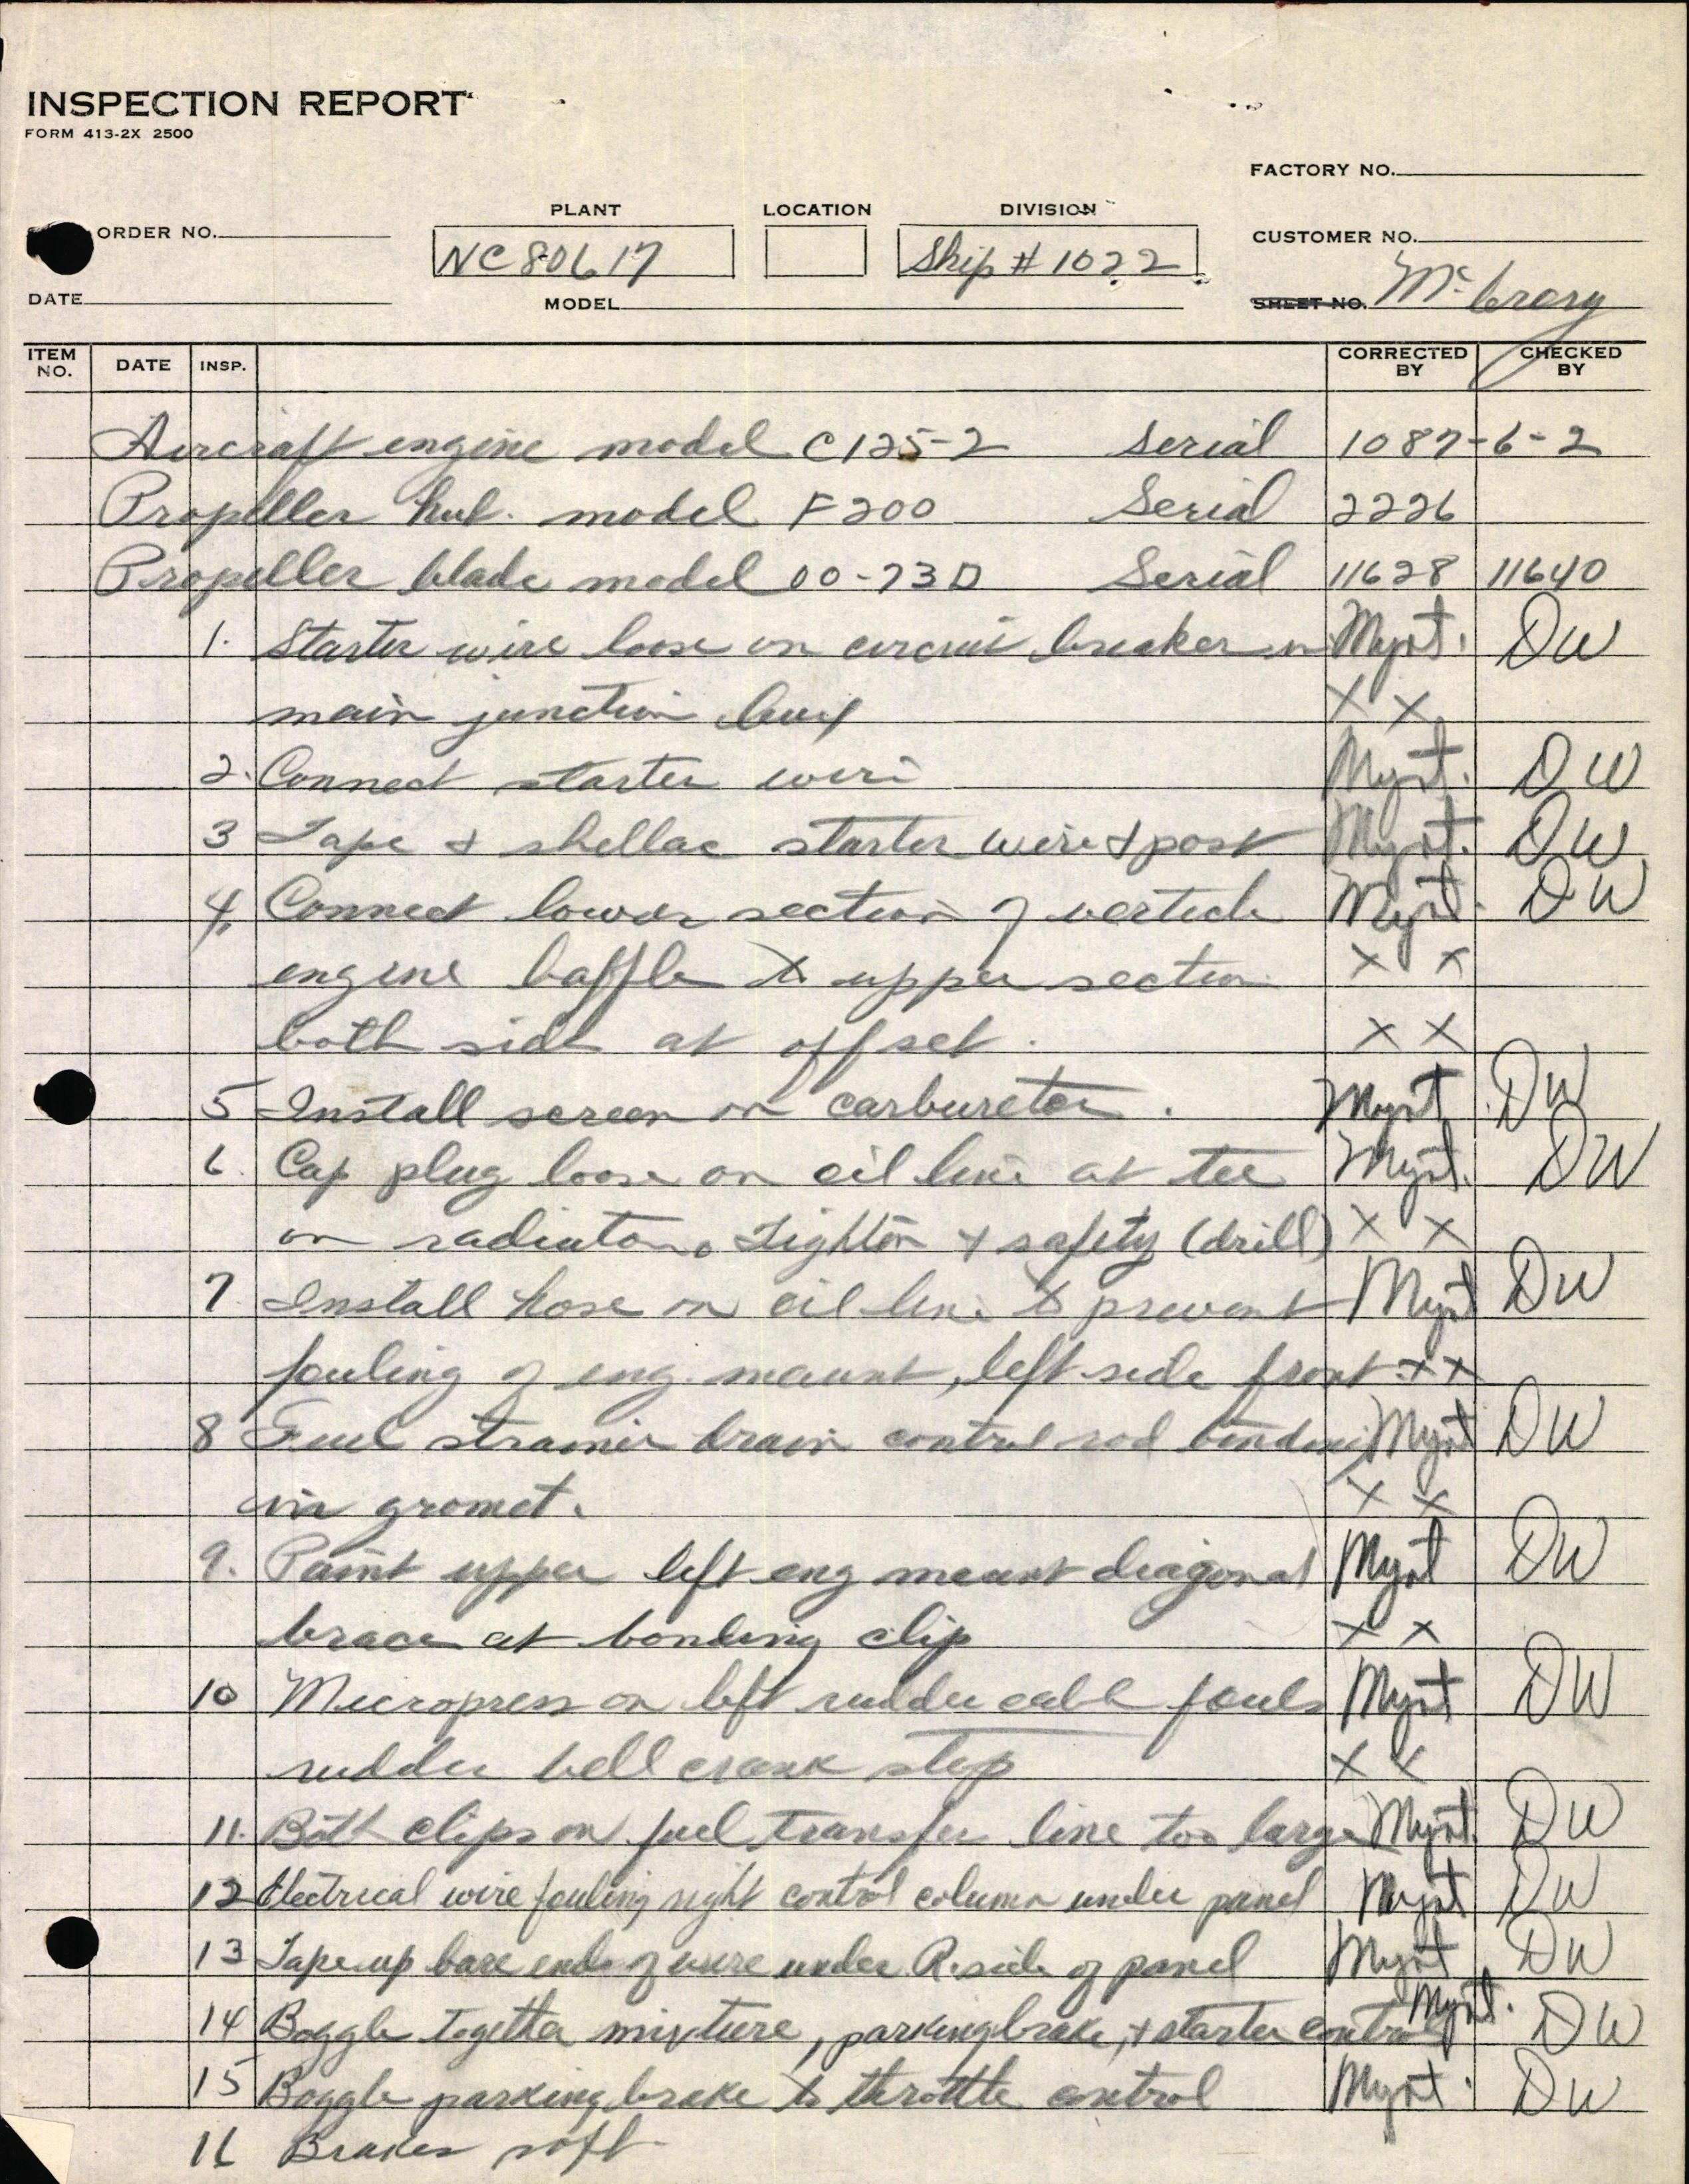 INSPECTION REPORT
FORM 413-2X 2500
FACTORY NO.
PLANT LOCATION DIVISION
ORDER NO. NC80617 Ship # 1022 CUSTOMER NO.
DATE MODEL SHEET NO. McCrary
ITEM NO. DATE INSP. CORRECTED BY CHECKED BY
Aircraft engine model C125-2 Serial 1087-6-2
Propeller hub. model F200 Serial 2226
Propeller blade model 00-73D Serial 11628 11640
1. Starter wire loose on circuit breaker in Mynt. DW
main junction box X X
2. Connect starter wire Mynt. DW
3 Tape & shellac starter wire & post Mynt. DW
4. Connect lower section of verticle Mynt. DW
engine baffle to upper section X X
both side at offset. X X
5 Install screen on carbureter. Mynt DW
6. Cap plug loose on oil line at tee Mynt. DW
on radiator. Tighten & safety (drill) X X
7. Install hose on oil line to prevent Mynt DW
fouling of eng. mount, left side front. X X
8 Fuel strainer drain control rod binding Mynt DW
in gromet. X X
9. Paint upper left eng mount diagonal Mynt DW
brace at bonding clip X X
10 Micropress on left rudder cable fouls Mynt DW
rudder bell crank stop X X
11. Both clips on fuel transfer line too large Mynt. DW
12 Electrical wire fouling right control column under panel Mynt DW
13 Tape up bare ends of wire under R. side of panel Mynt DW
14 Boggle togetha mixture, parking brake, & starter control Mynt. DW
15 Boggle parking brake to throttle control Mynt. DW
16 Brakes soft